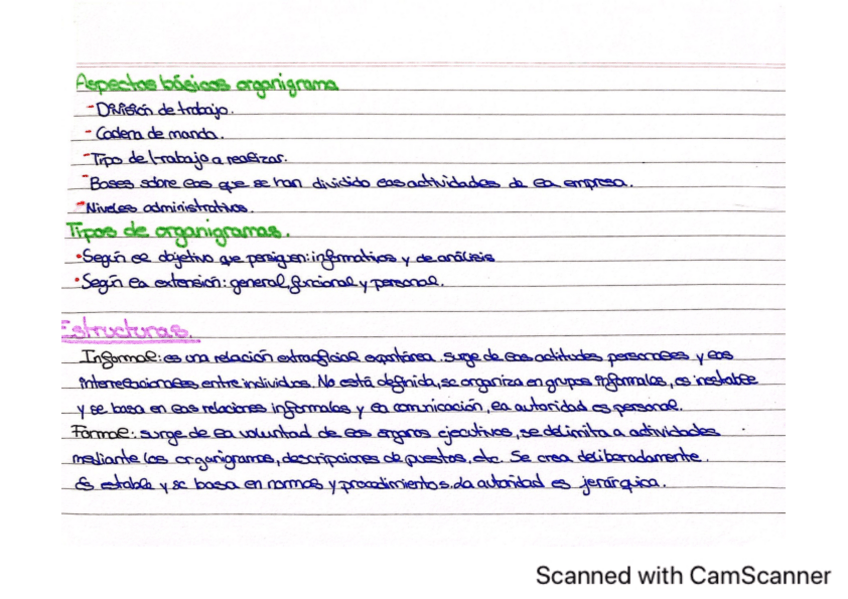 Aspectos básicos organigrama
- División de trabajo.
- Cadena de mando.
- Tipo de trabajo a realizar.
- Bases sobre las que se han dividido las actividades de la empresa.
- Niveles administrativos.
Tipos de organigramas.
• Según el objetivo que persiguen: informativos y de análisis
• Según la extensión: general, funcional y personal.
Estructuras.
Informal: es una relación extraoficial espontánea. Surge de las actitudes personales y las
interrelacionales entre individuos. No está definida, se organiza en grupos informales, es inestable
y se basa en las relaciones informales y la comunicación, la autoridad es personal.
Formal: surge de la voluntad de los órganos ejecutivos, se delimita a actividades
mediante los organigramas, descripciones de puestos, etc. Se crea deliberadamente.
Es estable y se basa en normas y procedimientos. La autoridad es jerárquica.
Scanned with CamScanner